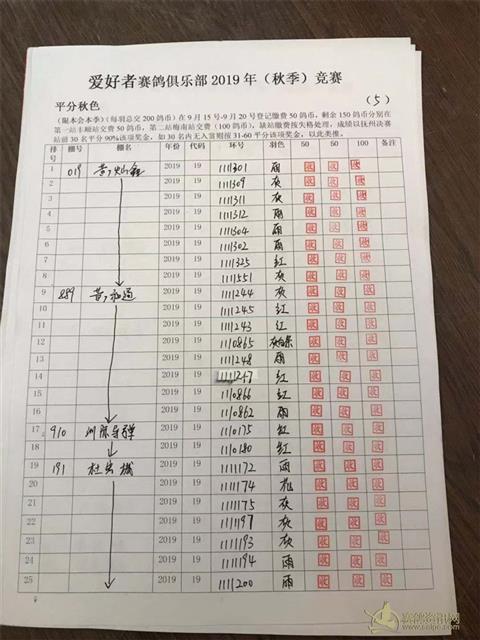 爱好者赛鸽俱乐部2019年（秋季）竞赛
平分秋色
（5）
（限本会本季）（每羽总交200鸽币）在9月15号-9月20号登记缴费50鸽币，剩余150鸽币分别在
第一站丰顺站交费50鸽币，第二站梅南站交费（100鸽币），缺站缴费按失格处理，成绩以抚州决赛
站前30名平分90%该项奖金，如30名内无入赏则按31-60平分该项奖金，以此类推。
排号 棚号 棚名 年份 代码 环号 羽色 50 50 100 备注
1 019 2019 19 1111301 雨 收 收 收
2 2019 19 1111309 灰 收 收 收
3 2019 19 1111311 灰 收 收 收
4 2019 19 1111312 雨 收 收 收
5 2019 19 1111304 雨 收 收 收
6 2019 19 1111302 雨 收 收 收
7 2019 19 1111325 红 收 收 收
8 2019 19 1111551 灰 收 收 收
9 889 2019 19 1111244 灰 收 收 收
10 2019 19 1111245 红 收 收 收
11 2019 19 1111243 红 收 收 收
12 2019 19 1110865 收 收 收
13 2019 19 1111248 雨 收 收 收
14 2019 19 1111247 红 收 收 收
15 2019 19 1110866 红 收 收 收
16 2019 19 1110862 雨 收 收 收
17 910 2019 19 1110175 红 收 收 收
18 2019 19 1110180 红 收 收 收
19 191 2019 19 1111172 雨 收 收 收
20 2019 19 1111174 花 收 收 收
21 2019 19 1111175 灰 收 收 收
22 2019 19 1111197 灰 收 收 收
23 2019 19 1111193 灰 收 收 收
24 2019 19 1111194 雨 收 收 收
25 2019 19 1111200 雨 收 收 收
赛鸽资讯网